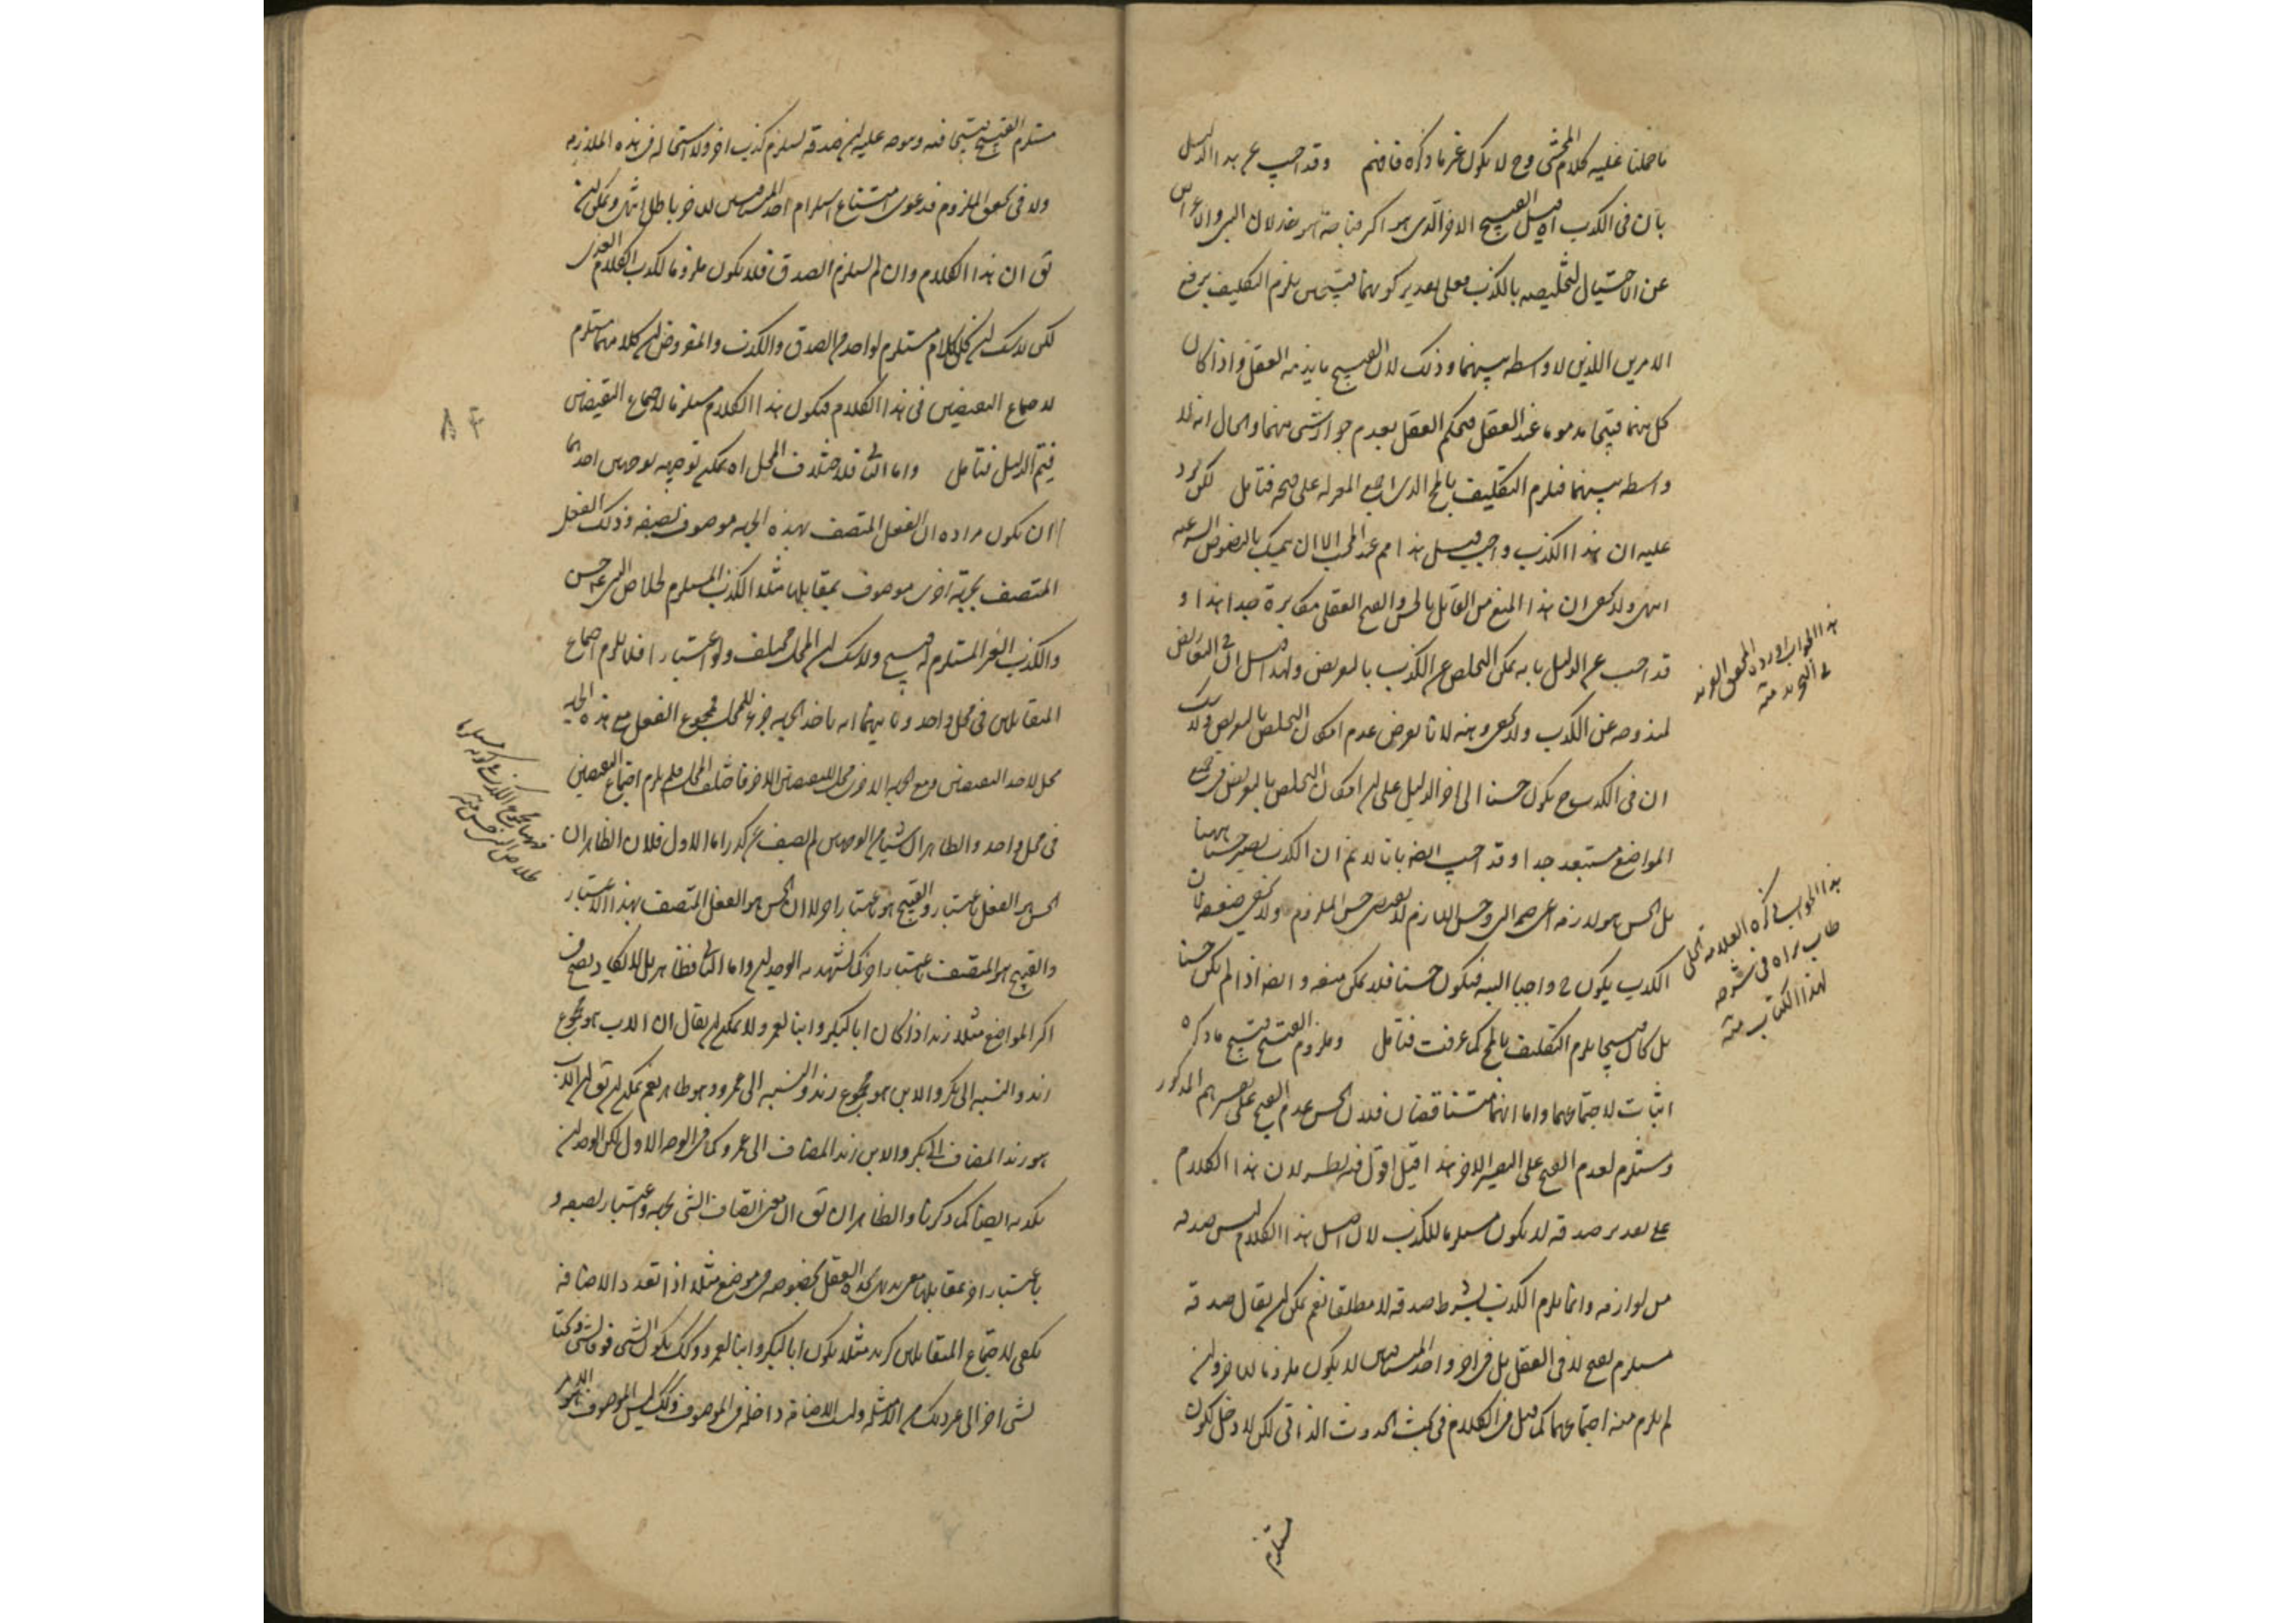 ما حملنا عليه كلام المحشى وح لا يكون غير ما ذكره فافهم وقد اجيب عن هذا الدليل
بان فى الكذب اه قيل القبيح الاخر الذى هو اكثر قباحة هو خذلان النبى والاعراض
عن الاحتيال لتخليصه بالكذب فعلى تقدير كونهما قبيحين يلزم التكليف برفع
الامرين اللذين لا واسطه بينهما وذلك لان القبيح ما يذمه العقل واذا كان
كل منهما قبيحا مذموما عند العقل فيحكم العقل بعدم جواز شى منهما والحال انه لا
واسطه بينهما فيلزم التكليف بالمح الذى اجمع المعتزله على قبحه فتامل لكن يرد
عليه ان هذا الكذب واجب قيل هذا مم عند المجيب الا ان يتمسك بالنصوص الشرعيه
انتهى ولا يخفى ان هذا المنع من القائل بالحسن والقبح العقلى مكابرة جدا هذا و
قد اجيب عن الدليل بانه يمكن التخلص عن الكذب بالتعريض ولهذا قيل ان فى التعاريض
لمندوحه عن الكذب ولا يخفى وهنه لانا نفرض عدم امكان التخلص بالتعريض ولا شك
ان فى الكذب ح يكون حسنا الى اخر الدليل على ان امكان التخلص بالتعريض فى جميع
المواضع مستبعد جدا وقد اجيب ايضا بانا لا نم ان الكذب يصير حسنا ههنا
بل الحسن هو لازمه اعنى عصمة النبى وحسن اللازم لا يقتضى حسن الملزوم ولا يخفى ضعفه فان
الكذب يكون ح واجبا البته فيكون حسنا فلا يمكن منعه وايضا اذا لم يكن حسنا
بل كان قبيحا يلزم التكليف بالمح كما عرفت فتامل وملزوم القبيح قبيح ما ذكره
اثبات لاجتماعهما واما انهما متناقضان فلان الحسن عدم القبح على تفسيرهم المذكور
ومستلزم لعدم القبح على التفسير الاخر هذا قيل اقول فيه نظر لان هذا الكلام
على تقدير صدقه لا يكون مستلزما للكذب لان اصل هذا الكلام ليس صدقه
من لوازمه وانما يلزم الكذب بشرط صدقه لا مطلقا نعم يمكن ان يقال صدقه
مستلزم لقبح لا فى العقل بل فى اخر واحد المتنافيين لا يكون ملزوما للاخر وان
لم يلزم منه اجتماعهما كما قيل فى الكلام فى بحث الحدوث الذاتى لكن لا دخل لكون
مستلزم
هذا الجواب اورده المحقق
فى التجريد منه
هذا الجواب ذكره العلامه الحلى
طاب ثراه فى شرحه
لهذا الكتاب منه
مستلزم القبيح قبيحا فيه ويتوجه عليه ان صدقه يستلزم كذب اخر ولا استحاله فى هذه الملازمه
ولا فى تحقق الملزوم فدعوى امتناع استلزام احد المتنافيين للاخر باطل انتهى ويمكن ان
يق ان هذا الكلام وان لم يستلزم الصدق فلا يكون ملزوما لكذب الكلام الغدى
لكن لا شك ان كل كلام مستلزم لواحد من الصدق والكذب والمفروض ان كلا منهما مستلزم
لاجتماع النقيضين فى هذا الكلام فيكون هذا الكلام مستلزما لاجتماع النقيضين
فيتم الدليل فتامل واما الثانى فلاختلاف المحل اه يمكن توجيهه بوجهين احدهما
ان يكون مراده ان الفعل المتصف بهذه الجهه موصوف بصفه وذلك الفعل
المتصف بجهة اخرى موصوف بمقابلها مثلا الكذب المستلزم لخلاص النبى حسن
والكذب الغير المستلزم له قبيح ولا شك ان المحل مختلف ولو اعتبارا فلا يلزم اجتماع
المتقابلين فى محل واحد وثانيهما انه باخذ الجهه جزء للمحل فمجموع الفعل مع هذه الجهه
محل لاحد النقيضين ومع الجهه الاخرى محل للنقيض الاخر فاختلف المحل فلم يلزم اجتماع النقيضين
فى محل واحد والظاهر ان شيئا من الوجهين لم يصف عن كدر اما الاول فلان الظاهر ان
الحسن هو الفعل باعتبار والقبيح هو باعتبار اخر لا ان الحسن هو الفعل المتصف بهذا الاعتبار
والقبيح هو المتصف باعتبار اخر كما يشهد به الوجدان واما الثانى فظاهر بل لا يكاد يصح فى
اكثر المواضع مثلا زيد اذا كان ابا لبكر وابنا لعمرو لا يمكن ان يقال ان الاب هو مجموع
زيد والنسبه الى بكر والابن هو مجموع زيد والنسبه الى عمرو وهو ظاهر نعم يمكن ان يق ان الاب
هو زيد المضاف الى بكر والابن زيد المضاف الى عمرو كما فى الوجه الاول لكن الوجدان
يكذبه ايضا كما ذكرنا والظاهر ان يق ان معنى اتصاف الشى بجهه واعتبار لصفه و
باعتبار اخر بمقابلها معنى يدركه العقل بخصوصه فى موضع مثلا اذا تعدد الاضافه
يكفى لاجتماع المتقابلين كزيد مثلا يكون ابا لبكر وابنا لعمرو وكذلك يكون الشى فوقا لشى وتحتا
لشى اخر الى غير ذلك من الامثله وليس الاضافه داخله فى الموصوف وكذلك ليس الموصوف
٨٤
فههنا مجموع الكذب مع كونه مستلزما
خلاص النبى حسن منه